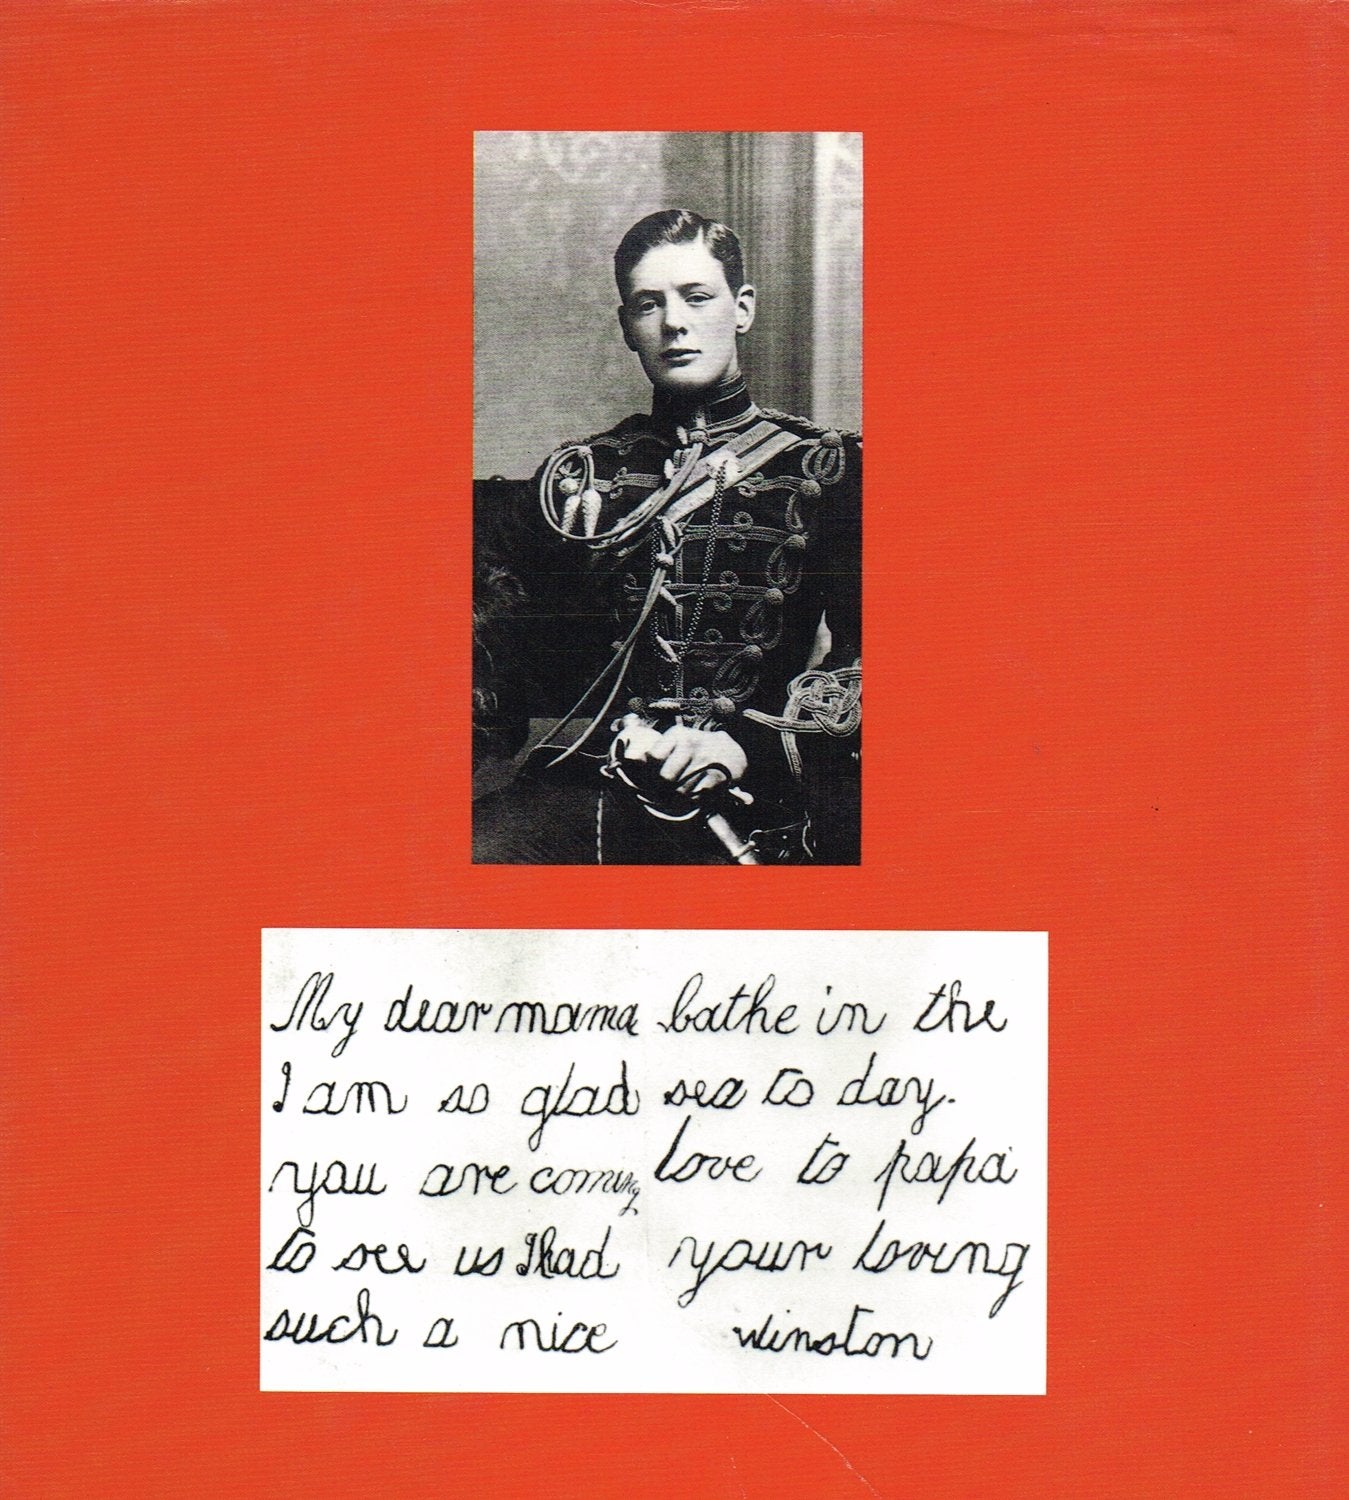 My dear mama
I am so glad
you are coming
to see us I had
such a nice
bathe in the
sea to day.
love to papa
your loving
winston